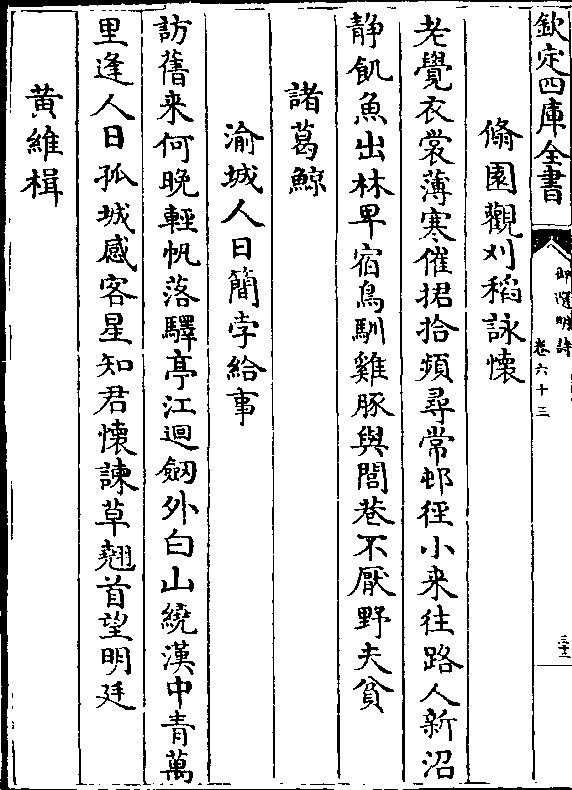 欽定四庫全書
御選明詩
卷六十三
三十二
脩園觀刈稻詠懐
老覺衣裳薄寒催捃拾頻尋常邨徑小来往路人新沼
静飢魚出林卑宿鳥馴雞豚與閭巷不厭野夫貧
諸葛鯨
渝城人日簡李給事
訪舊来何晚輕帆落驛亭江迴劔外白山繞漢中青萬
里逢人日孤城感客星知君懐諫草翹首望明廷
黄維楫